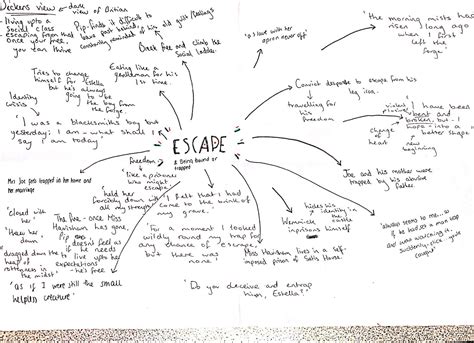 Dickens view → dark
view of Britian
living upto a
Social class
escaping from that
once your free,
you can thrive
Pip-finds it difficult to
leave past behind,
constantly reminded of his old guilt/feelings
Break free and climb the
Social ladder.
Eating like a
gentleman for his
1st time.
Tries to change
himself for Estella
but he's always
going to be
the boy from
the forge.
Identity
crisis
'I was a blacksmiths boy but
yesterday; I am - what shall I
say I am today'
'a slave with her
apron never off'
'the morning mists had
risen long ago
when I first
left the
forge'
Convict desperate to escape from his
leg iron.
travelling for
his
freedom
violent
'I have been
bent and
broken, but - I
hope - into a better
shape'
change of
heart
new
beginning
ESCAPE
& being bound or
trapped
freedom
'like a prisoner
who might
escape.'
Mrs Joe gets trapped in her home and
her marriage
Joe and his mother were
trapped by his abusive
father.
'held her
forcibly down with
all my strength'
'I felt that I had
come to the brink of
my grave.
'closed with
her'
'threw her
down'
'dragged down the
heap of
rottenness in
the midst'
The fire - once Miss
Havisham has gone,
Pip
doesn't feel as
if he needs
to live upto
expectations
- he's free
'as if I were still the small
helpless creature'
'For a moment I looked
wildly round my trap for
any chance of escape,
but there was
none'
hides his
identity in the
Wemmick,
imprisons himself
Miss Havisham lives in a self-
imposed prison of Satis House.
'Do you deceive and entrap
him, Estella?'
'always seems to me...as
if he had set a man trap
and was watching it.
suddenly-click-you're
caught'